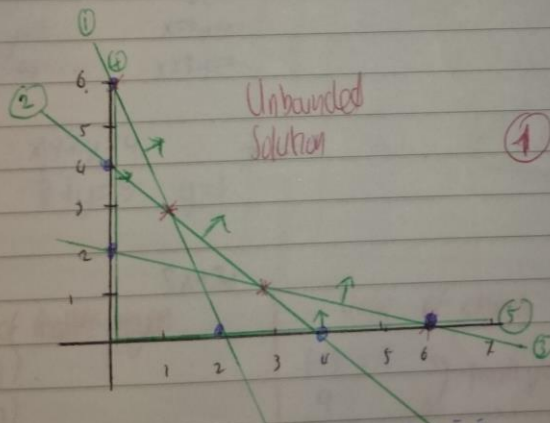 ①
④
6
②
Unbounded
Solution
①
5
4
3
2
1
⑤
1 2 3 4 5 6 7
③